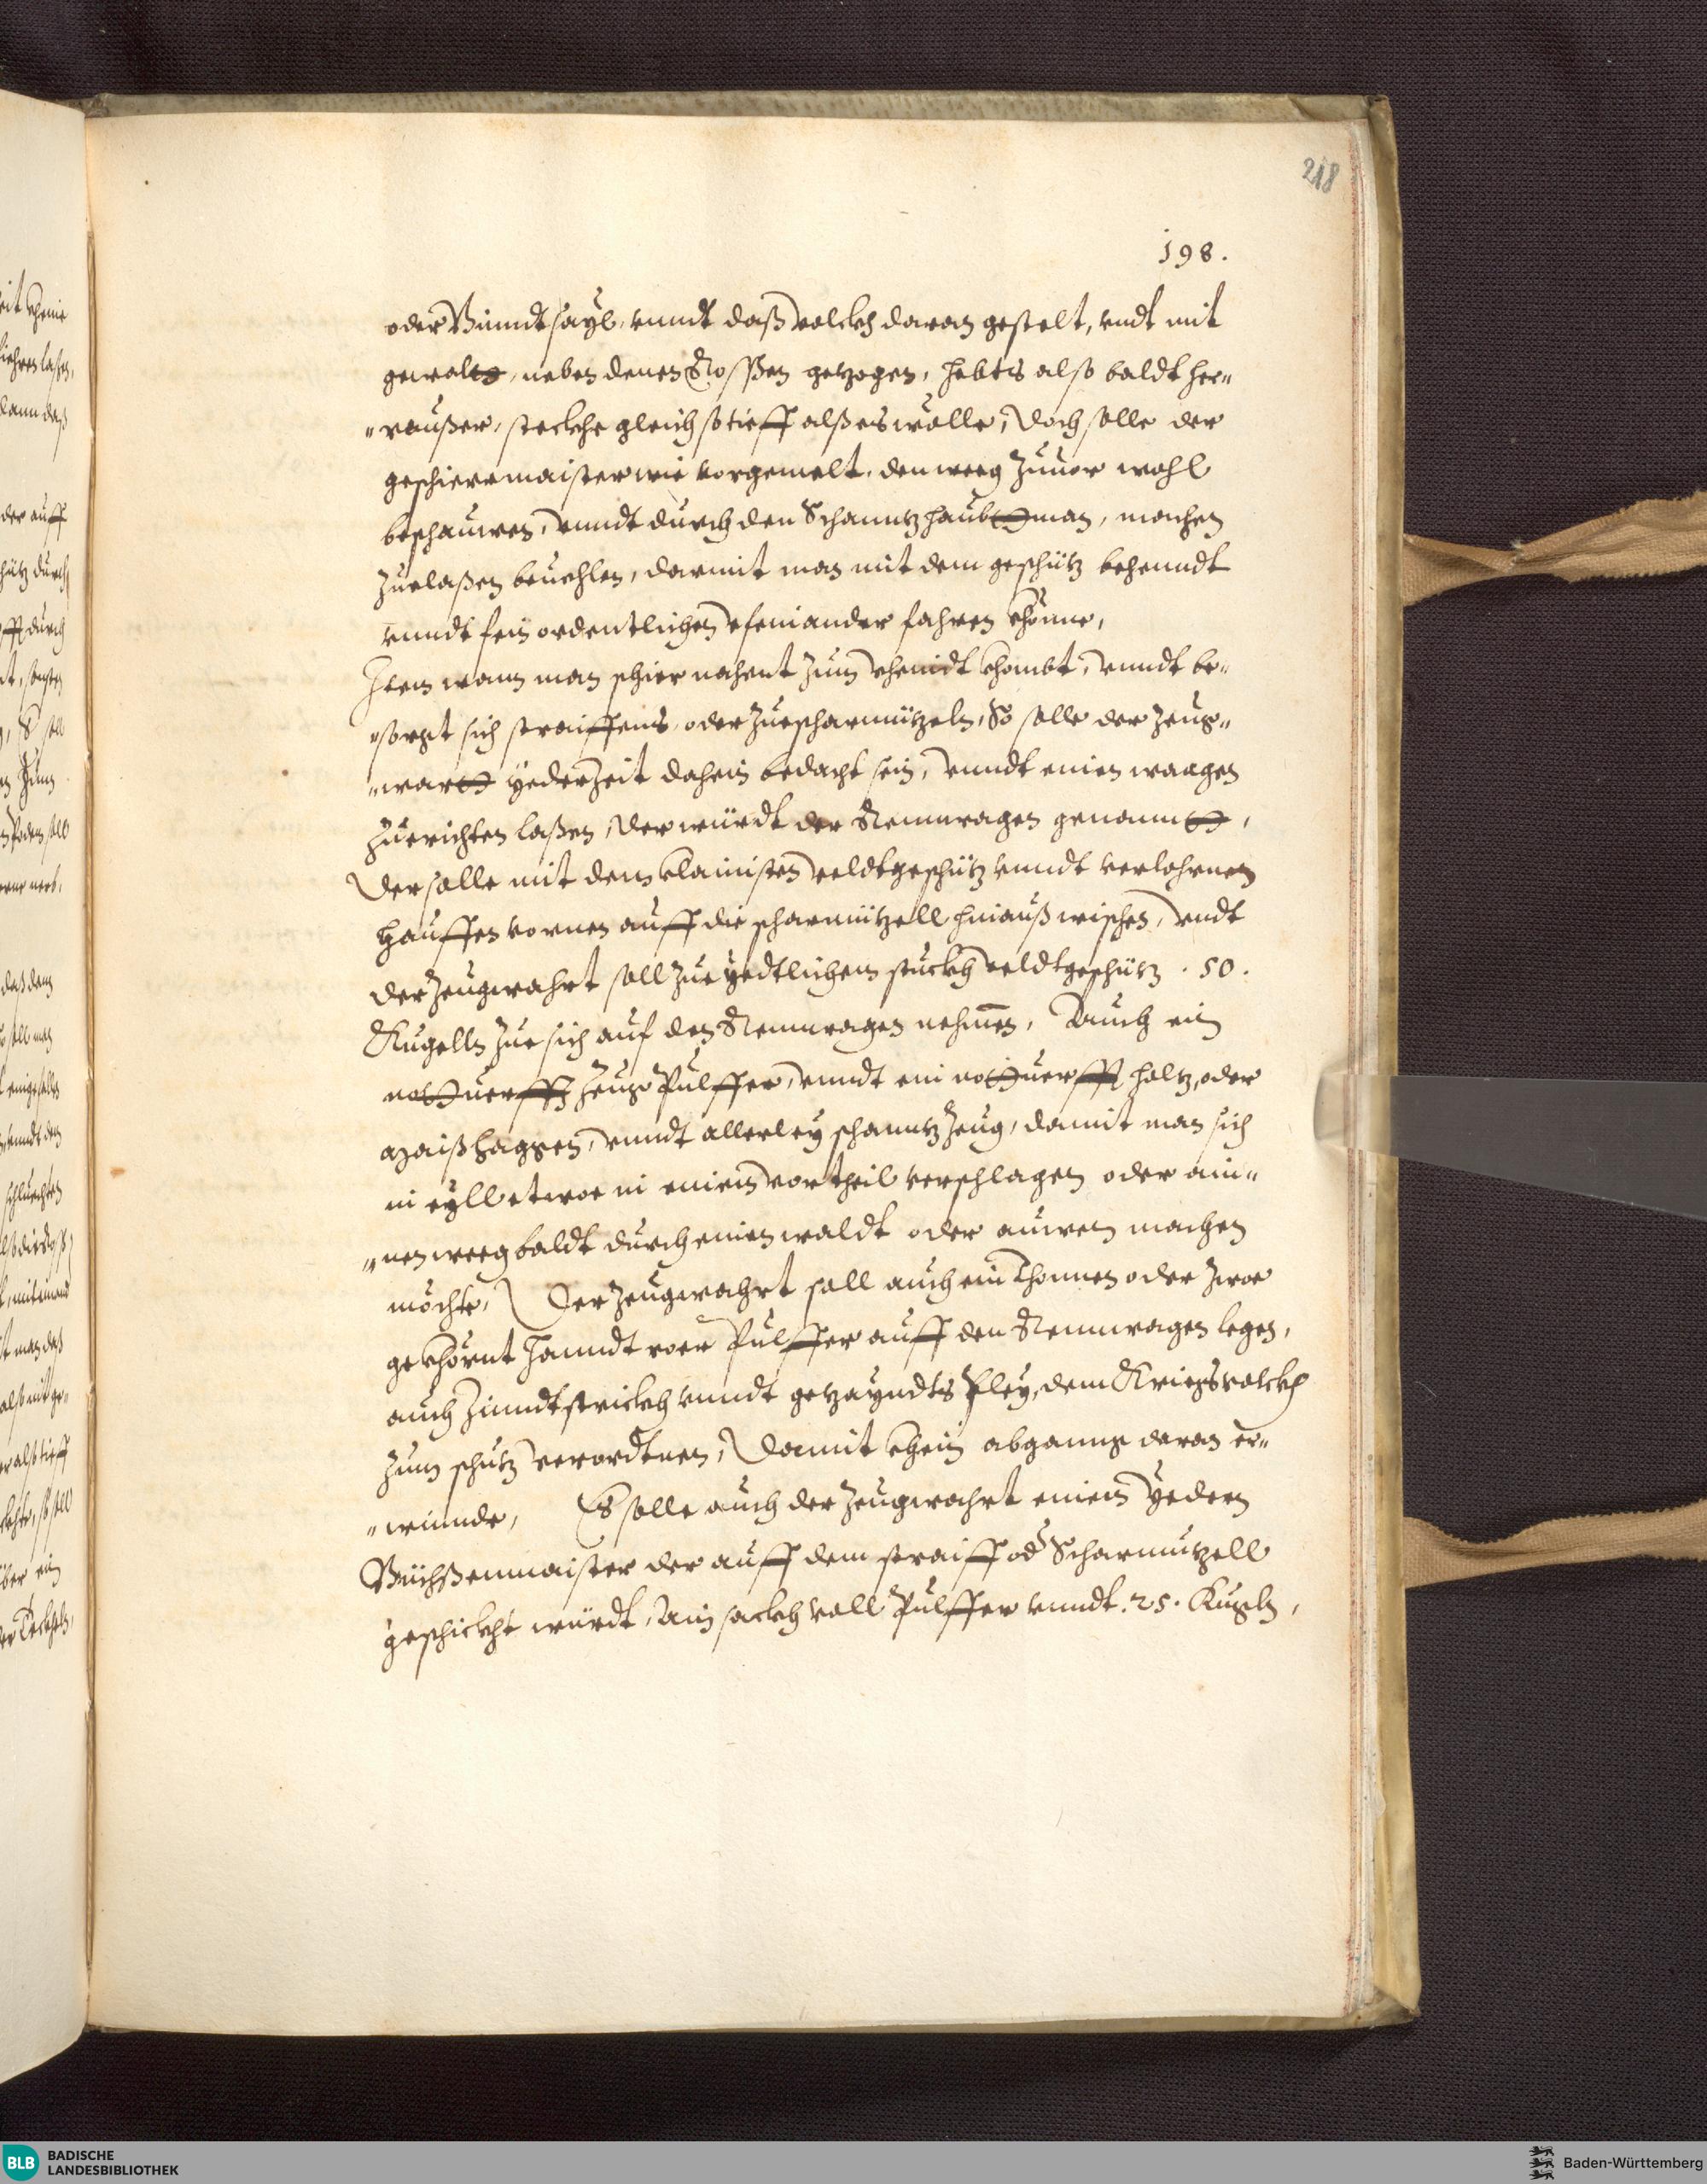 218
198.
oder Bündtsayl, vnndt daß volckh daran gestelt, vndt mit
gewaltt, neben denen Roßen gezogen, hebts also baldt her„
„raußer, steckhe gleich so tieff alß es wölle, Doch solle der
geschierrmaister wie vorgemelt, den weeg zuuor wohl
beschauwen, vnndt durch den Schanntzhaubttman, machen
zuelaßen beuehlen, darmit man mit dem geschütz behenndt
vnndt fein ordentlichen ineinander fahren khönne,
Item wann man schier nahent zum veindt khombt, vnndt be„
„sorgt sich straiffens, oder zuescharmützeln, So solle der Zeug„
„wartt yederzeit dahein bedacht sein, vnndt einen waagen
zuerichten laßen, der würdt der Rennwagen genanntt,
Der solle mit dem klainisten veldtgeschütz vnndt verlohrnen
hauffen vornen auff die scharmützell hinauß wischen, vndt
der Zeugwahrt soll zue yedtlichem stuckh veldtgeschütz . 50.
Kugelln zue sich auf den Rennwagen nehmen, Auch ein
notturfft Zeug Pulffer, vnndt ein notturfft holtz, oder
maißhagken, vnndt allerley schanntz Zeug, damit man sich
in eyll etwoe in einem vortheil verschlagen oder ain„
„nen weeg baldt durch einen waldt oder auwen machen
möchte, Der Zeugwahrt soll auch ein Thonnen oder zwoe
gekhörnt Hanndt roer Pulffer auff den Rennwagen legen,
auch Zinndtstrickh vnndt gezayndts Pley, dem Kriegsvolckh
zum schutz verordtnen, Damit khein abganng daran er„
„winnde, Es solle auch der Zeugwahrt einem yedem
Büchßenmaister der auff dem straiff od Scharmützell
geschickht würdt, Ain sackh voll Pulffer vnndt. 25. Kugeln,
BLB
BADISCHE
LANDESBIBLIOTHEK
Baden-Württemberg